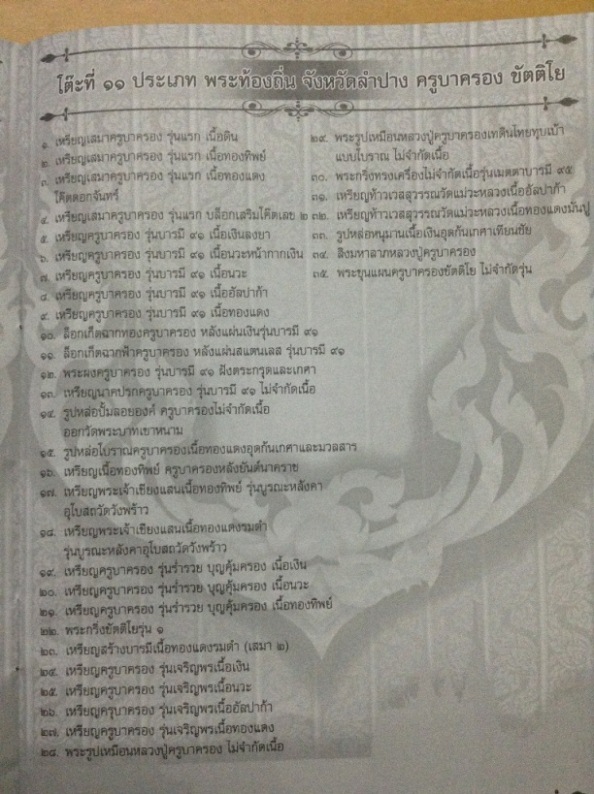 โต๊ะที่ ๑๑ ประเภท พระท้องถิ่น จังหวัดลำปาง ครูบาครอง ขัตติโย
๑. เหรียญเสมาครูบาครอง รุ่นแรก เนื้อดิน
๒. เหรียญเสมาครูบาครอง รุ่นแรก เนื้อทองทิพย์
๓. เหรียญเสมาครูบาครอง รุ่นแรก เนื้อทองแดง
โค๊ตดอกจันทร์
๔. เหรียญเสมาครูบาครอง รุ่นแรก บล็อกเสริมโค๊ตเลข ๒
๕. เหรียญครูบาครอง รุ่นบารมี ๙๑ เนื้อเงินลงยา
๖. เหรียญครูบาครอง รุ่นบารมี ๙๑ เนื้อนวะหน้ากากเงิน
๗. เหรียญครูบาครอง รุ่นบารมี ๙๑ เนื้อนวะ
๘. เหรียญครูบาครอง รุ่นบารมี ๙๑ เนื้ออัลปาก้า
๙. เหรียญครูบาครอง รุ่นบารมี ๙๑ เนื้อทองแดง
๑๐. ล็อกเก็ตฉากทองครูบาครอง หลังแผ่นเงินรุ่นบารมี ๙๑
๑๑. ล็อกเก็ตฉากฟ้าครูบาครอง หลังแผ่นสแตนเลส รุ่นบารมี ๙๑
๑๒. พระผงครูบาครอง รุ่นบารมี ๙๑ ฝังตระกรุดและเกศา
๑๓. เหรียญนาคปรกครูบาครอง รุ่นบารมี ๙๑ ไม่จำกัดเนื้อ
๑๔. รูปหล่อปั้มลอยองค์ ครูบาครองไม่จำกัดเนื้อ
ออกวัดพระบาทเขาหนาม
๑๕. รูปหล่อโบราณครูบาครองเนื้อทองแดงอุดก้นเกศาและมวลสาร
๑๖. เหรียญเนื้อทองทิพย์ ครูบาครองหลังยันต์นาคราช
๑๗. เหรียญพระเจ้าเชียงแสนเนื้อทองทิพย์ รุ่นบูรณะหลังคา
อุโบสถวัดวังพร้าว
๑๘. เหรียญพระเจ้าเชียงแสนเนื้อทองแดงรมดำ
รุ่นบูรณะหลังคาอุโบสถวัดวังพร้าว
๑๙. เหรียญครูบาครอง รุ่นร่ำรวย บุญคุ้มครอง เนื้อเงิน
๒๐. เหรียญครูบาครอง รุ่นร่ำรวย บุญคุ้มครอง เนื้อนวะ
๒๑. เหรียญครูบาครอง รุ่นร่ำรวย บุญคุ้มครอง เนื้อทองทิพย์
๒๒. พระกริ่งขัตติโยรุ่น ๑
๒๓. เหรียญสร้างบารมีเนื้อทองแดงรมดำ (เสมา ๒)
๒๔. เหรียญครูบาครอง รุ่นเจริญพรเนื้อเงิน
๒๕. เหรียญครูบาครอง รุ่นเจริญพรเนื้อนวะ
๒๖. เหรียญครูบาครอง รุ่นเจริญพรเนื้ออัลปาก้า
๒๗. เหรียญครูบาครอง รุ่นเจริญพรเนื้อทองแดง
๒๘. พระรูปเหมือนหลวงปู่ครูบาครอง ไม่จำกัดเนื้อ
๒๙. พระรูปเหมือนหลวงปู่ครูบาครองเทดินไทยทุบเบ้า
แบบโบราณ ไม่จำกัดเนื้อ
๓๐. พระกริ่งทรงเครื่องไม่จำกัดเนื้อรุ่นเมตตาบารมี ๙๕
๓๑. เหรียญท้าวเวสสุวรรณวัดแม่วะหลวงเนื้ออัลปาก้า
๓๒. เหรียญท้าวเวสสุวรรณวัดแม่วะหลวงเนื้อทองแดงมันปู
๓๓. รูปหล่อหนุมานเนื้อเงินอุดก้นเกศาเทียนชัย
๓๔. สิงมหาลาภหลวงปู่ครูบาครอง
๓๕. พระขุนแผนครูบาครองขัตติโย ไม่จำกัดรุ่น